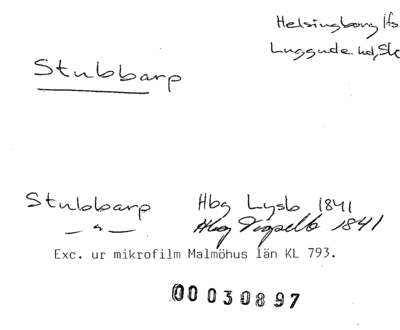 Helsingborg lfs
Luggude hd, Sk
Stubbarp
Stubbarp Hbg Lysb 1841
— " — Hbg Vigselb 1841
Exc. ur mikrofilm Malmöhus län KL 793.
00 030897